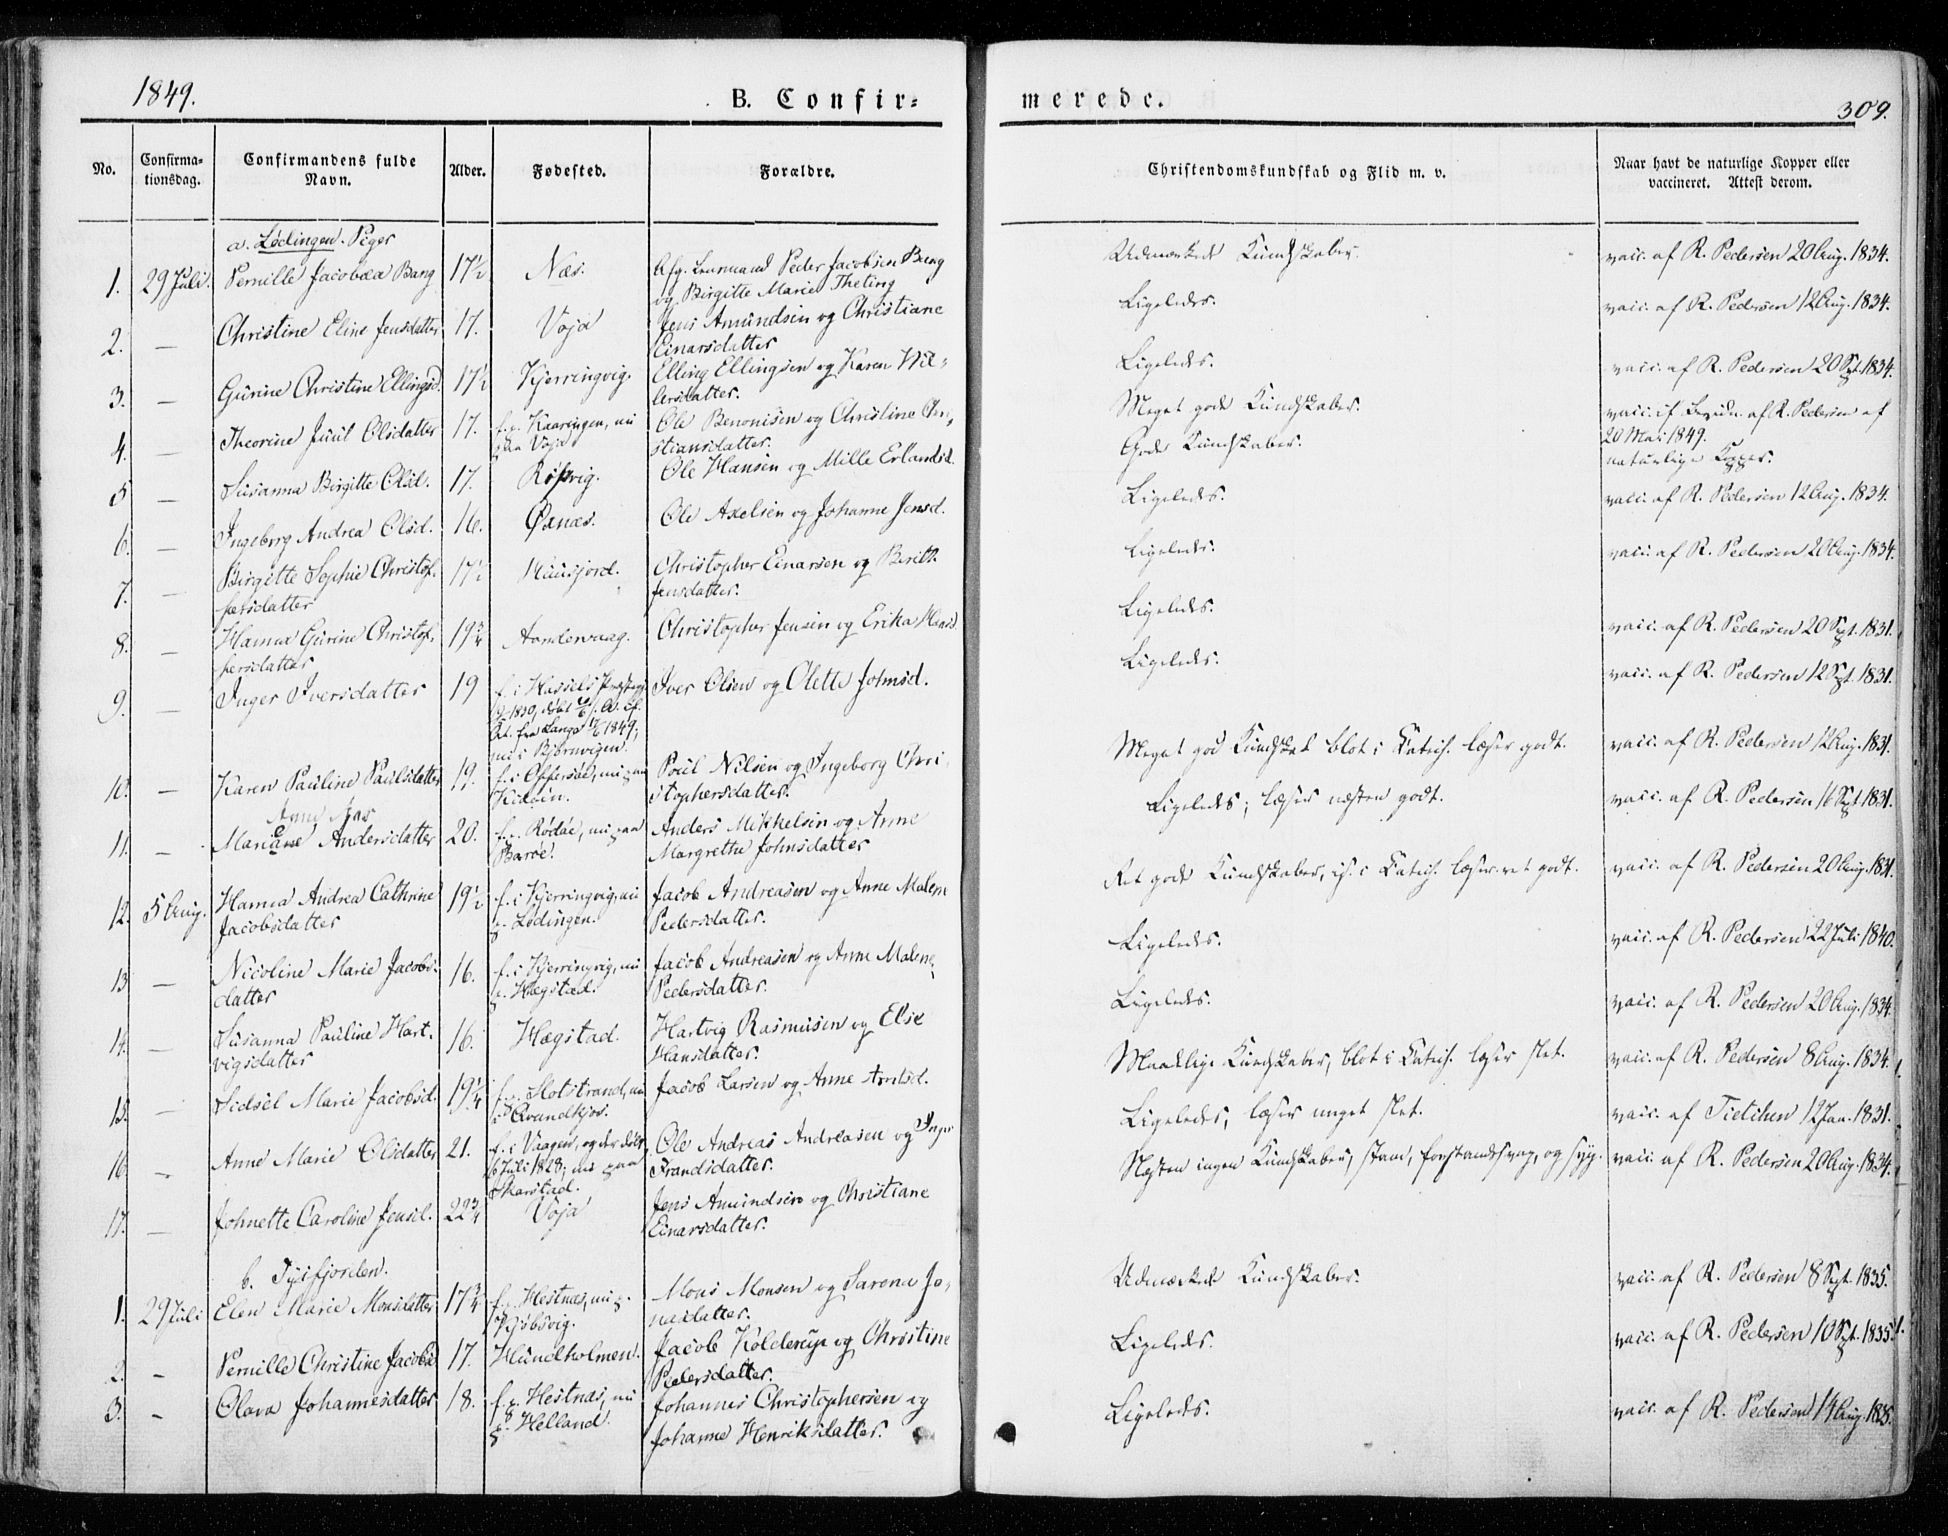 1849.
B. Confir=
merede.
309.
No.
Confirma-
tionsdag.
Confirmandens fulde
Navn.
Alder.
Fødested.
Forældre.
Christendomskundskab og Flid m. v.
Naar havt de naturlige Kopper eller
vaccineret. Attest derom.
a. Lødingen. Piger
1. 29 Juli. Pernille Jacobæa Bang 17½ Næs. Afg. Lensmand Peder Jacobsen Bang
og Birgitte Marie Theting
Udmærkede Kundskaber. vacc. af R. Pedersen 20 Aug. 1834.
2. — Christine Eline Jensdatter 17. Vojä Jens Amundsen og Christiane
Einarsdatter
Ligeledes. vacc. af R. Pedersen 12 Aug. 1834.
3. — Gurine Christine Ellingsd. 17½ Kjerringvig. Elling Ellingsen og Karen Nil-
lersdatter.
Ligeledes. vacc. af R. Pedersen 20 Spt. 1834.
4. — Theorine Juul Olsdatter 17. f. p. Kaaringen, nu
paa Vojä
Ole Benonisen og Christine Chri-
stiansdatter.
Meget gode Kundskaber. vacc. if. af R. Pedersen af
20 Mai 1849.
5 — Susanna Birgitte Olsd. 17. Røsvig. Ole Hansen og Mille Erlandsd.
Gode Kundskaber. naturlige Kopper.
6. — Ingeborg Andrea Olsd. 16. Øxnæs. Ole Axelsen og Johanne Jensd.
Ligeledes. vacc. af R. Pedersen 12 Aug. 1834.
7. — Birgitte Sophie Christof-
fersdatter
17½ Huusfjord. Christopher Einarsen og Berith
Jensdatter.
Ligeledes. vacc. af R. Pedersen 20 Aug. 1834.
8. — Hanna Gurine Christof-
fersdatter
19¾ Aandervaag. Christopher Jensen og Erika Hansd.
Ligeledes. vacc. af R. Pedersen 20 Spt. 1831.
9. — Inger Iversdatter 19 f. i Hassels Præsteg.
1830, døbt
Att. fra Langø 1849;
nu i Bjørnvigen.
Iver Olsen og Olette Johnsd.
Ligeledes. vacc. af R. Pedersen 12 Spt. 1831.
10. — Karen Pauline Paulsdatter 19. f. i Offersøe, nu paa
Kidøen.
Poul Nilsen og Ingeborg Chri-
stophersdatter.
Meget god Kundskab blot i Katech. læser godt. vacc. af R. Pedersen 12 Aug. 1831.
Anne
11. — Mariane Andersdatter 20. f. p. Rødøe, nu paa
Barøe.
Anders Mikkelsen og Anne
Margrethe Johnsdatter
Ligeledes; læser næsten godt. vacc. af R. Pedersen 16 Spt. 1831.
12. 5 Aug. Hanna Andrea Cathrine
Jacobsdatter
19½ f. i Kjerringvig, nu
p. Lødingen.
Jacob Andreasen og Anne Malene
Pedersdatter.
Ret gode Kundskaber, i Katech. læser ret godt. vacc. af R. Pedersen 20 Aug. 1831.
13 — Nicoline Marie Jacobs-
datter
16. f. i Kjerringvig, nu
p. Hægstad.
Jacob Andreasen og Anne Malene
Pedersdatter.
Ligeledes. vacc. af R. Pedersen 22 Juli 1840.
14. — Susanna Pauline Hart-
vigsdatter
16. Hægstad. Hartvig Rasmusen og Else
Hansdatter.
Ligeledes. vacc. af R. Pedersen 20 Aug. 1834.
15. — Sidsel Marie Jacobsd. 19¼ f. p. Slotstrand, nu
i Qvandkjos.
Jacob Larsen og Anne Arntsd.
Maadlige Kundskaber, blot i Katech. læser slet. vacc. af R. Pedersen 8 Aug. 1834.
16 — Anne Marie Olsdatter 21. f. i Vaagen, og der døbt
6 Juli 1828; nu paa
Skarstad.
Ole Andreas Andreasen og Inger
Trandsdatter.
Ligeledes, læser meget slet. vacc. af Tietchen 12 Jan. 1831.
17. — Johnette Caroline Jensd. 22¾ Vojä Jens Amundsen og Christiane
Einarsdatter.
Næsten ingen Kundskaber, stam, forstandssvag, og syg. vacc. af R. Pedersen 20 Aug. 1834.
b. Tysfjorden.
1. 29 Juli Elen Marie Monsdatter 17¾ f. p. Hestnæs, nu p.
Kjøbsvig.
Mons Monsen og Sarena Jo-
nasdatter.
Udmærkede Kundskaber. vacc. af R. Pedersen 8 Spt. 1835.
2. - Pernille Christine Jacobsd 17. Hundholmen. Jacob Kolderup og Christine
Pedersdatter.
Ligeledes. vacc. af R. Pedersen 10 Spt. 1835.
3. - Olava Johannesdatter 18. f. p. Hestnæs, nu
p. Helland.
Johannes Christophersen og
Johanne Henriksdatter.
Ligeledes. vacc. af R. Pedersen 14 Aug. 1835.